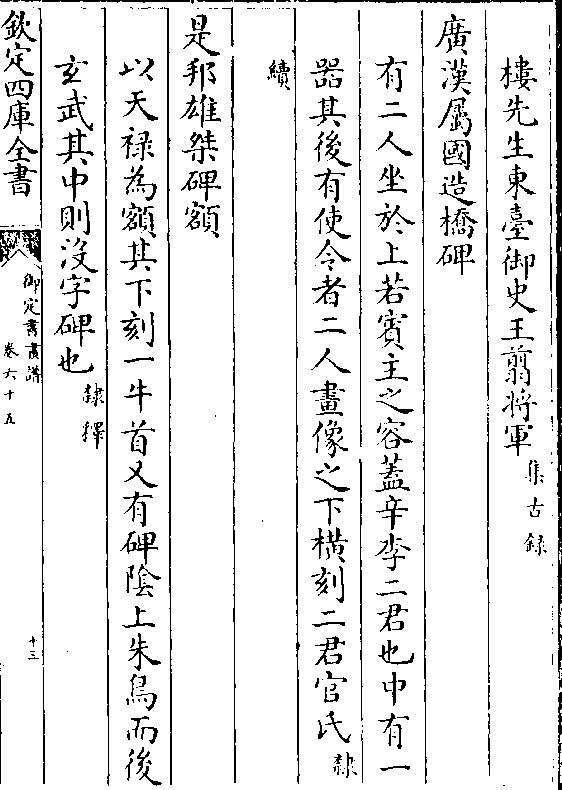 樓先生東臺御史王翦将軍集古録
廣漢屬國造橋碑
有二人坐於上若賓主之容蓋辛李二君也中有一
器其後有使令者二人畫像之下橫刻二君官氏隸
續
是邦雄桀碑額
以天禄為額其下刻一牛首又有碑陰上朱鳥而後
玄武其中則沒字碑也隸釋
欽定四庫全書
御定書畫譜
卷六十五
十三